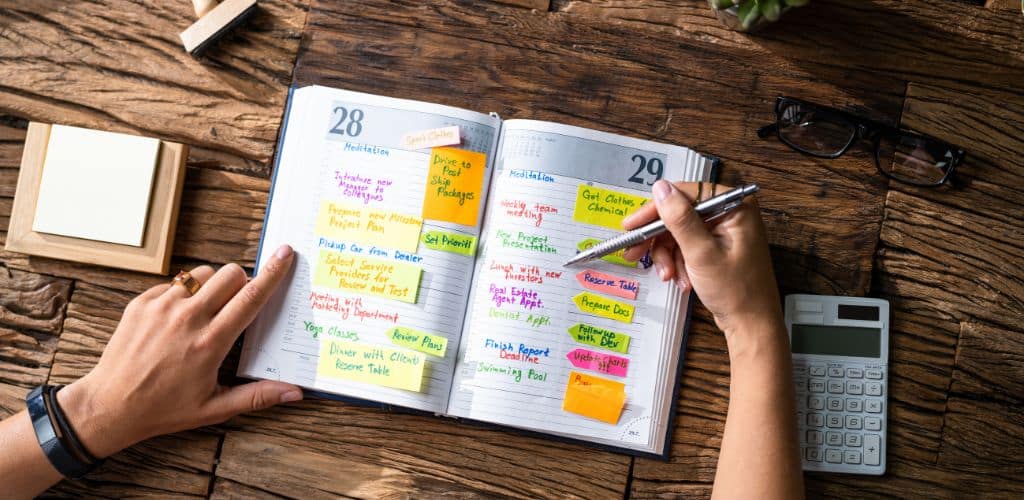 28
Meditation
Drive to
Post
Ship
Packages
Introduce new
Manager to
Colleagues
Prepare new Milestone
Project Plan
Set Prioriti
Pickup Car from Dealer
Select Service
Providers for
Review and Test
Meeting with
Marketing Department
Yoga Classes
Review Plans
Dinner with Clients
Reserve Table
29
Meditation
Get Clothes
Chemical
Weekly team
meeting
New Project
Presentation
Lunch with new
Investors
Reserve Table
Real Estate
Agent Appt.
Prepare Docs
Dentist Appt.
Followup
with Dev
Finish Report
Deadline
Update
Swimming Pool